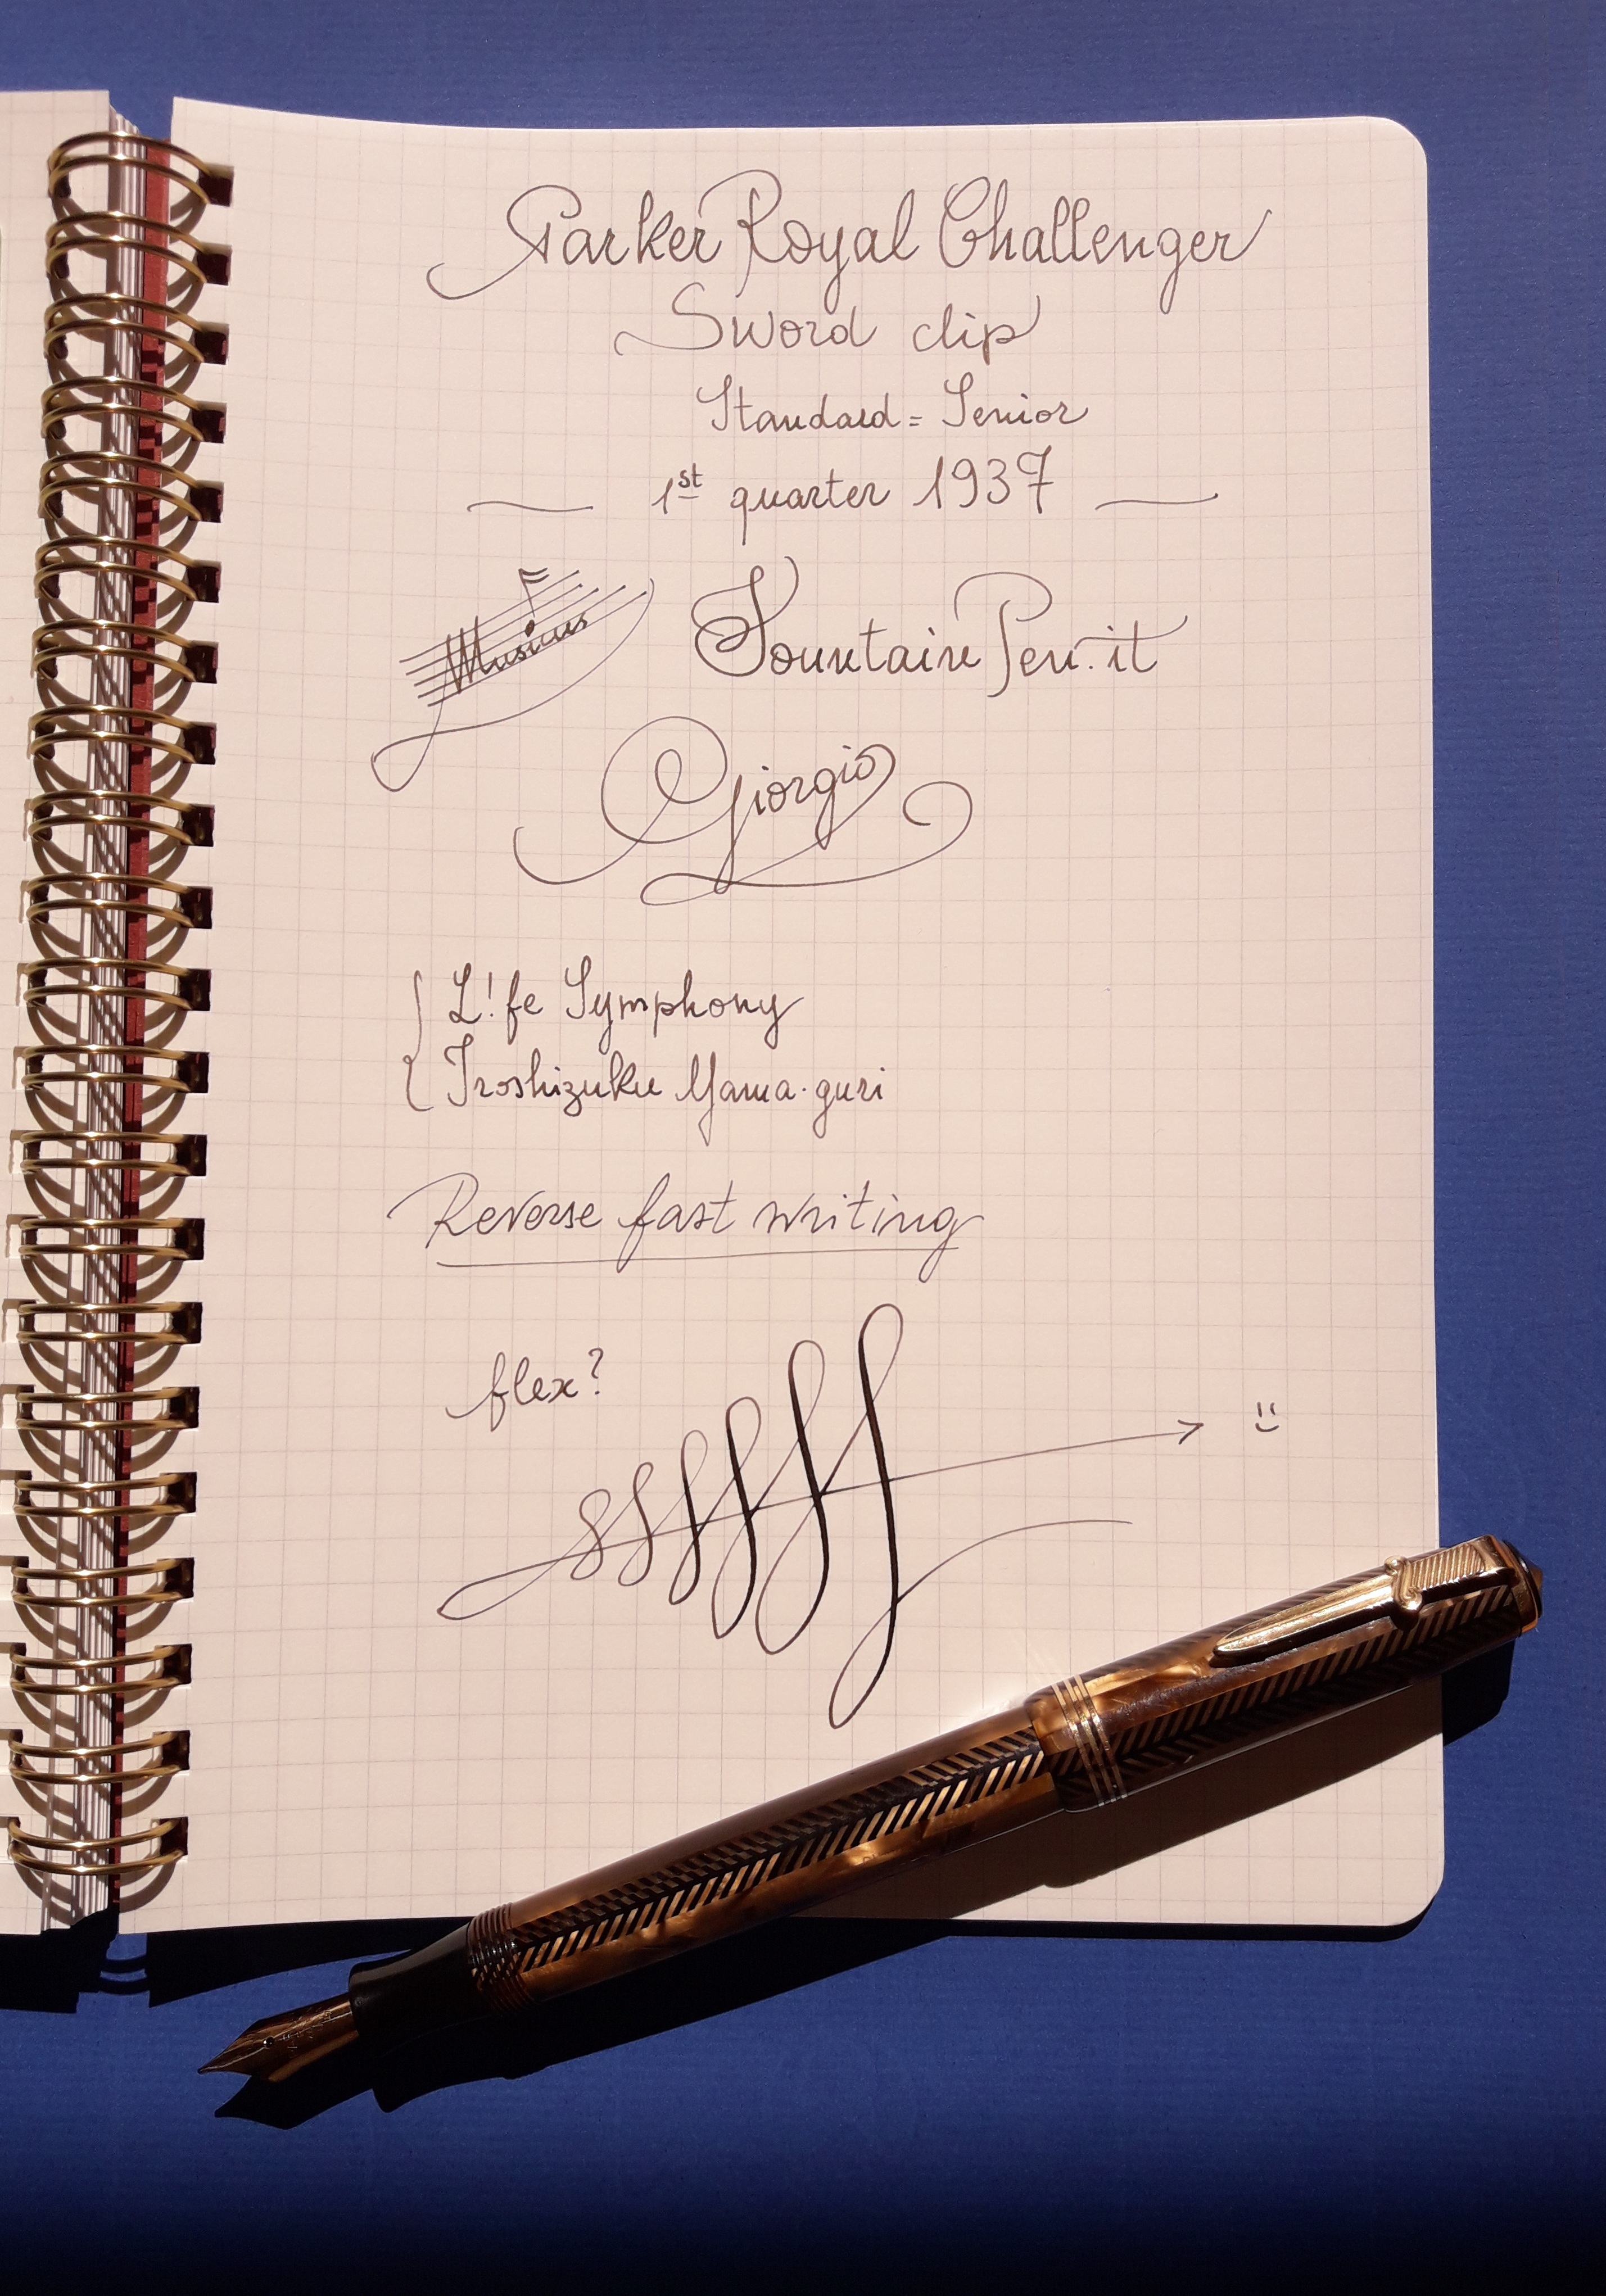 Parker Royal Challenger
Sword clip
Standard = Senior
1st quarter 1937
Musicus
FountainPen.it
Giorgio
L!fe Symphony
Iroshizuku Yama-guri
Reverse fast writing
flex?